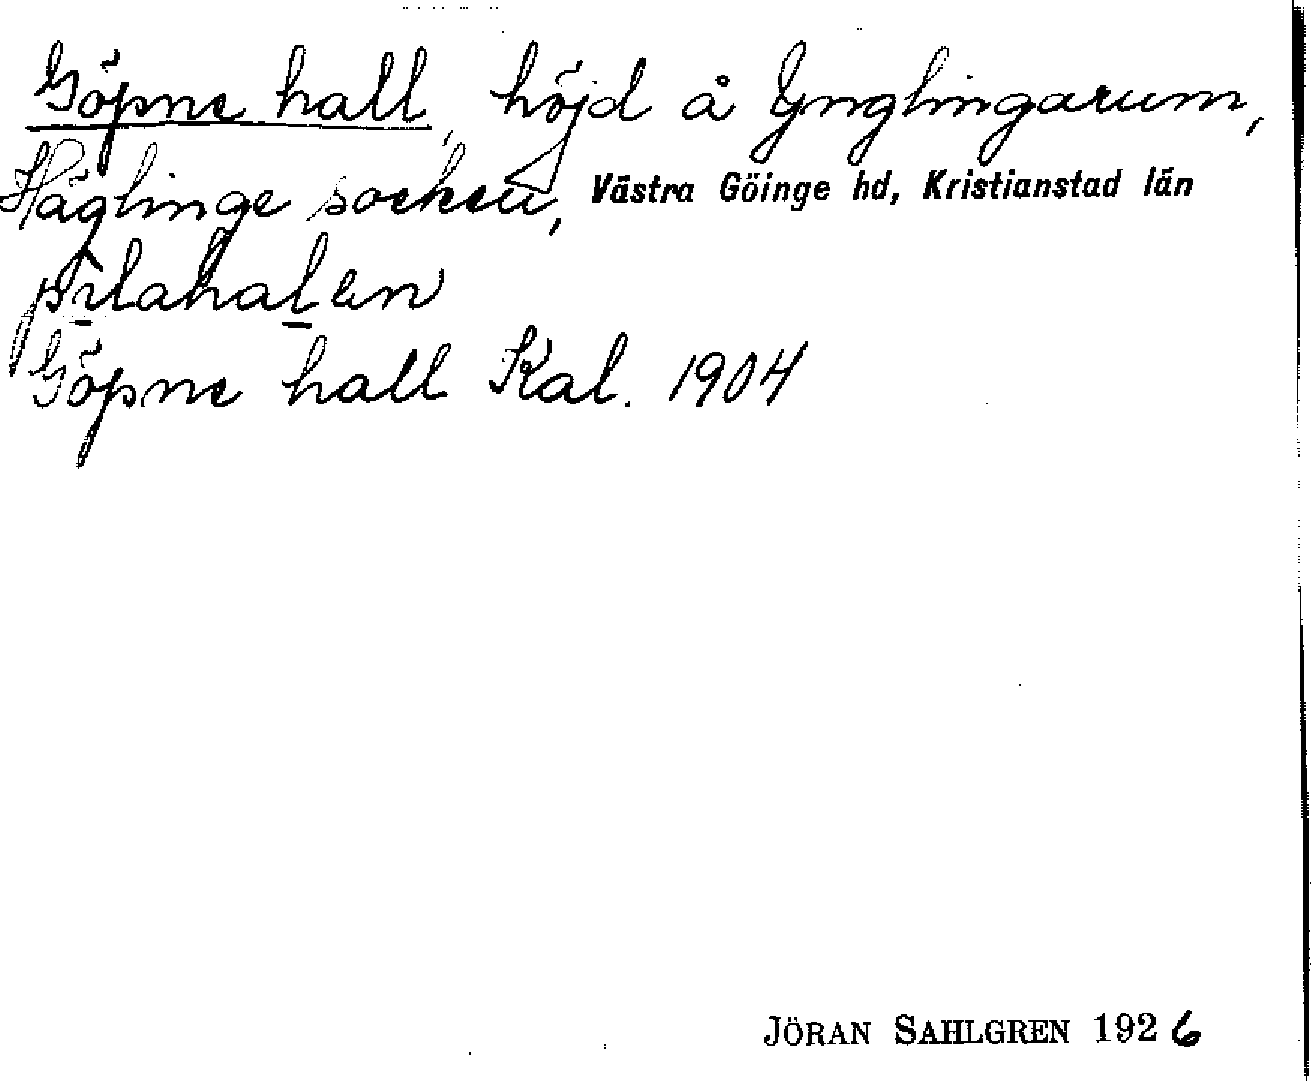 Göpne hall, höjd å Ynglingarum,
Häglinge socken, Västra Göinge hd, Kristianstad län
pilahalen
Göpne hall Kal. 1904
JÖRAN SAHLGREN 1926